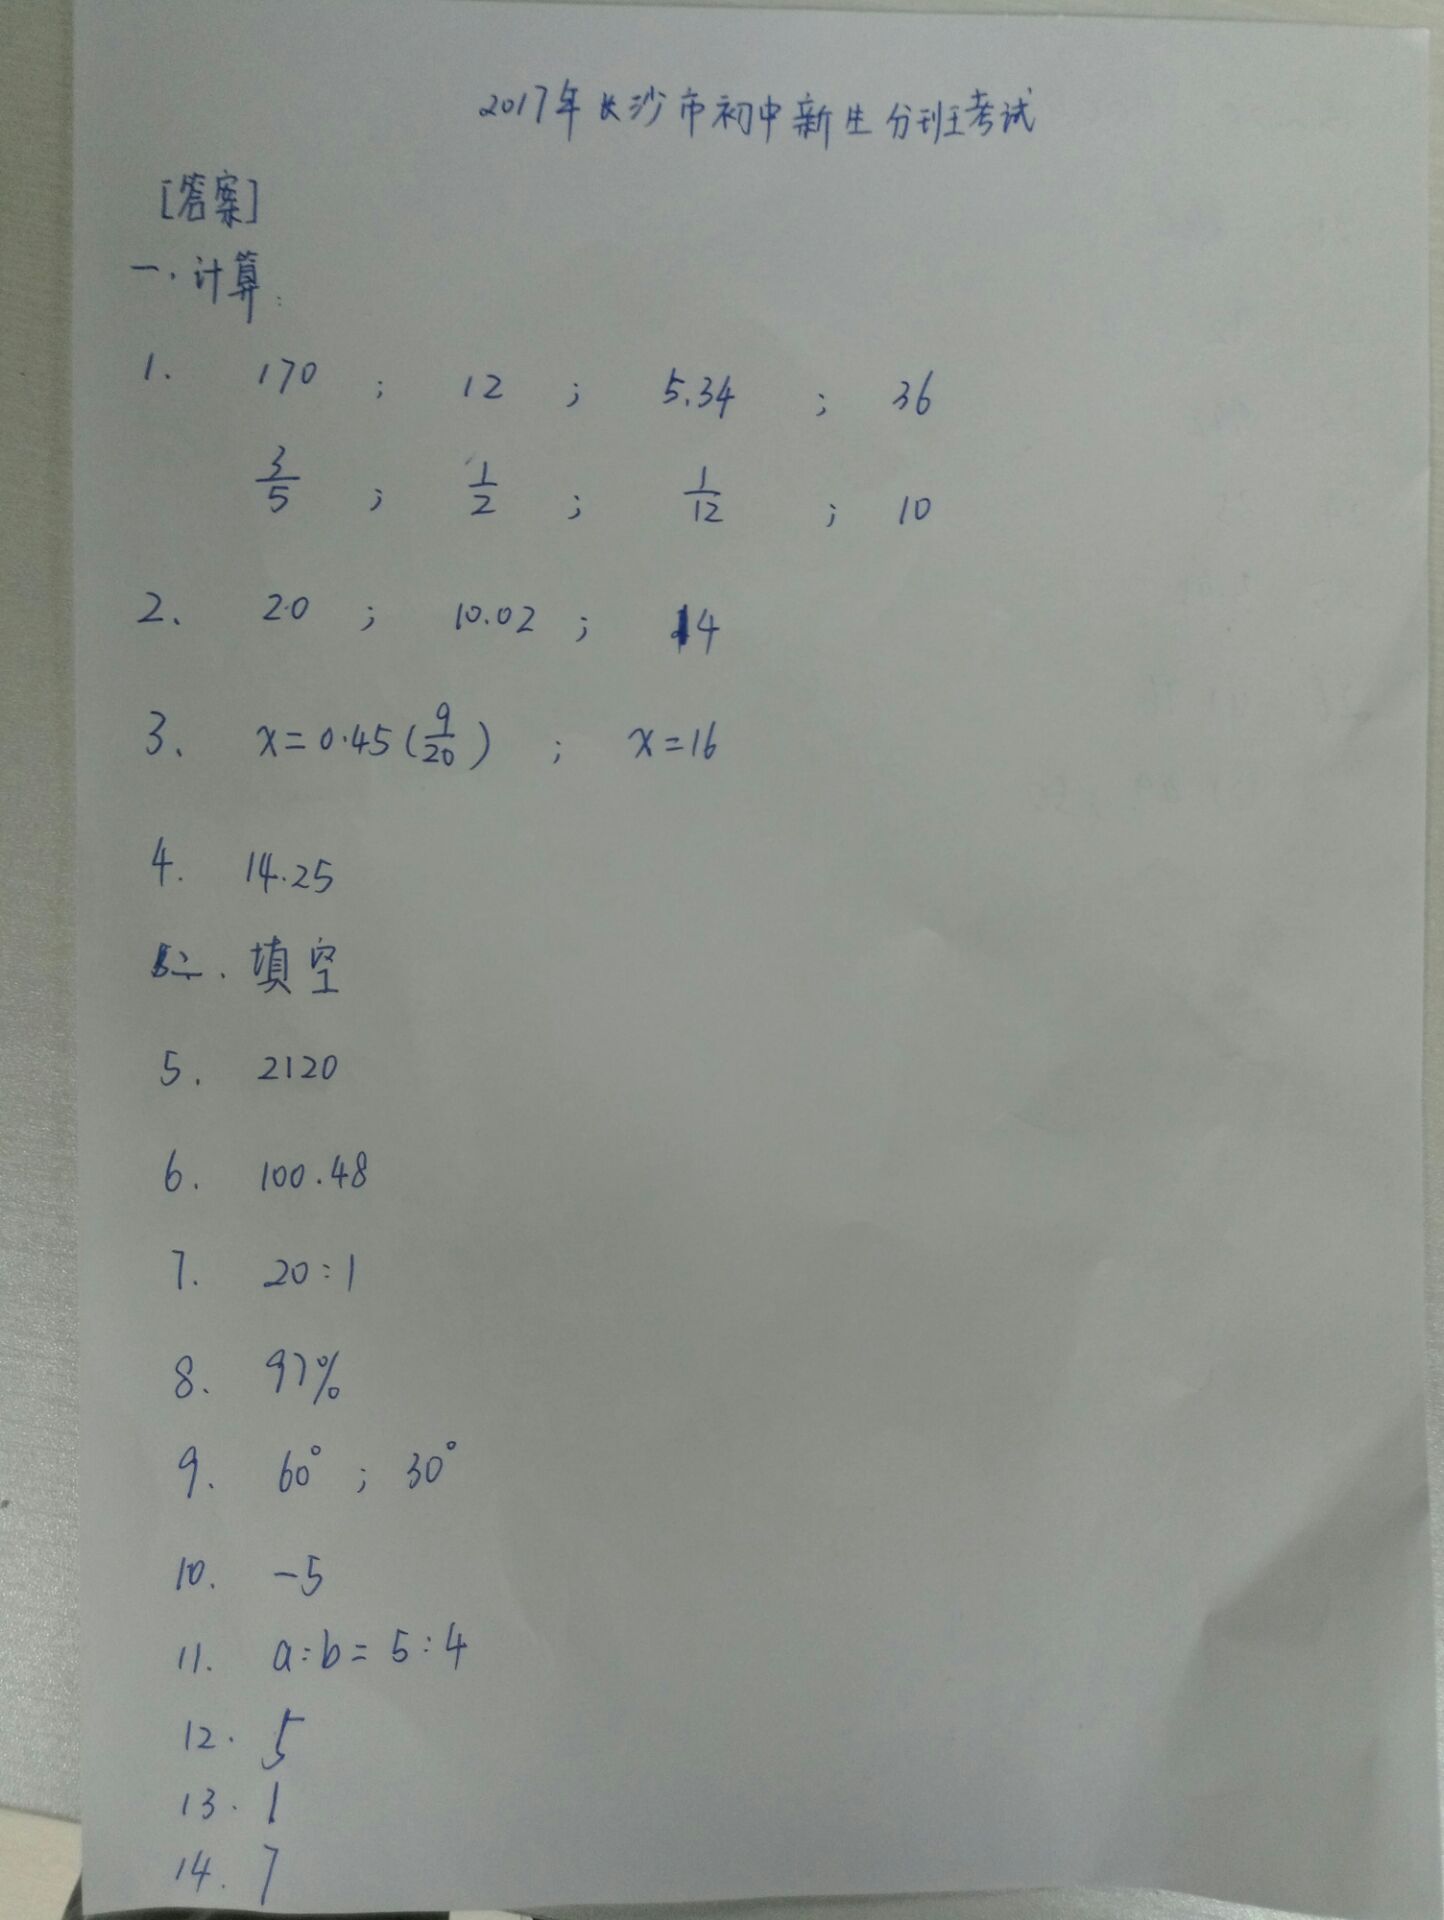 2017年长沙市初中新生分班考试
[答案]
一.计算:
1. 170 ; 12 ; 5.34 ; 36
3/5 ; 1/2 ; 1/12 ; 10
2. 20 ; 10.02 ; 14
3. x=0.45(9/20) ; x=16
4. 14.25
二.填空
5. 2120
6. 100.48
7. 20:1
8. 97%
9. 60° ; 30°
10. -5
11. a:b=5:4
12. 5
13. 1
14. 7